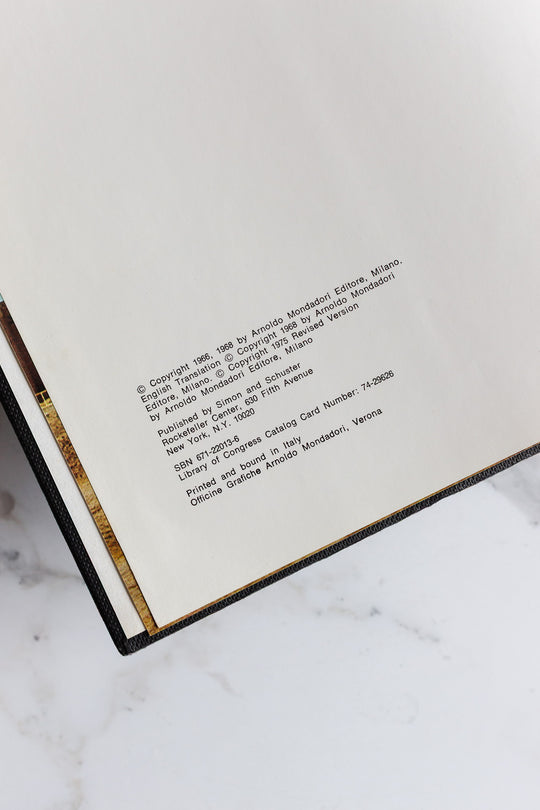 © Copyright 1966, 1968 by Arnoldo Mondadori Editore, Milano.
English Translation © Copyright 1968 by Arnoldo Mondadori
Editore, Milano. © Copyright 1975 Revised Version
by Arnoldo Mondadori Editore, Milano
Published by Simon and Schuster
Rockefeller Center, 630 Fifth Avenue
New York, N.Y. 10020
SBN 671-22013-6
Library of Congress Catalog Card Number: 74-29626
Printed and bound in Italy
Officine Grafiche Arnoldo Mondadori, Verona